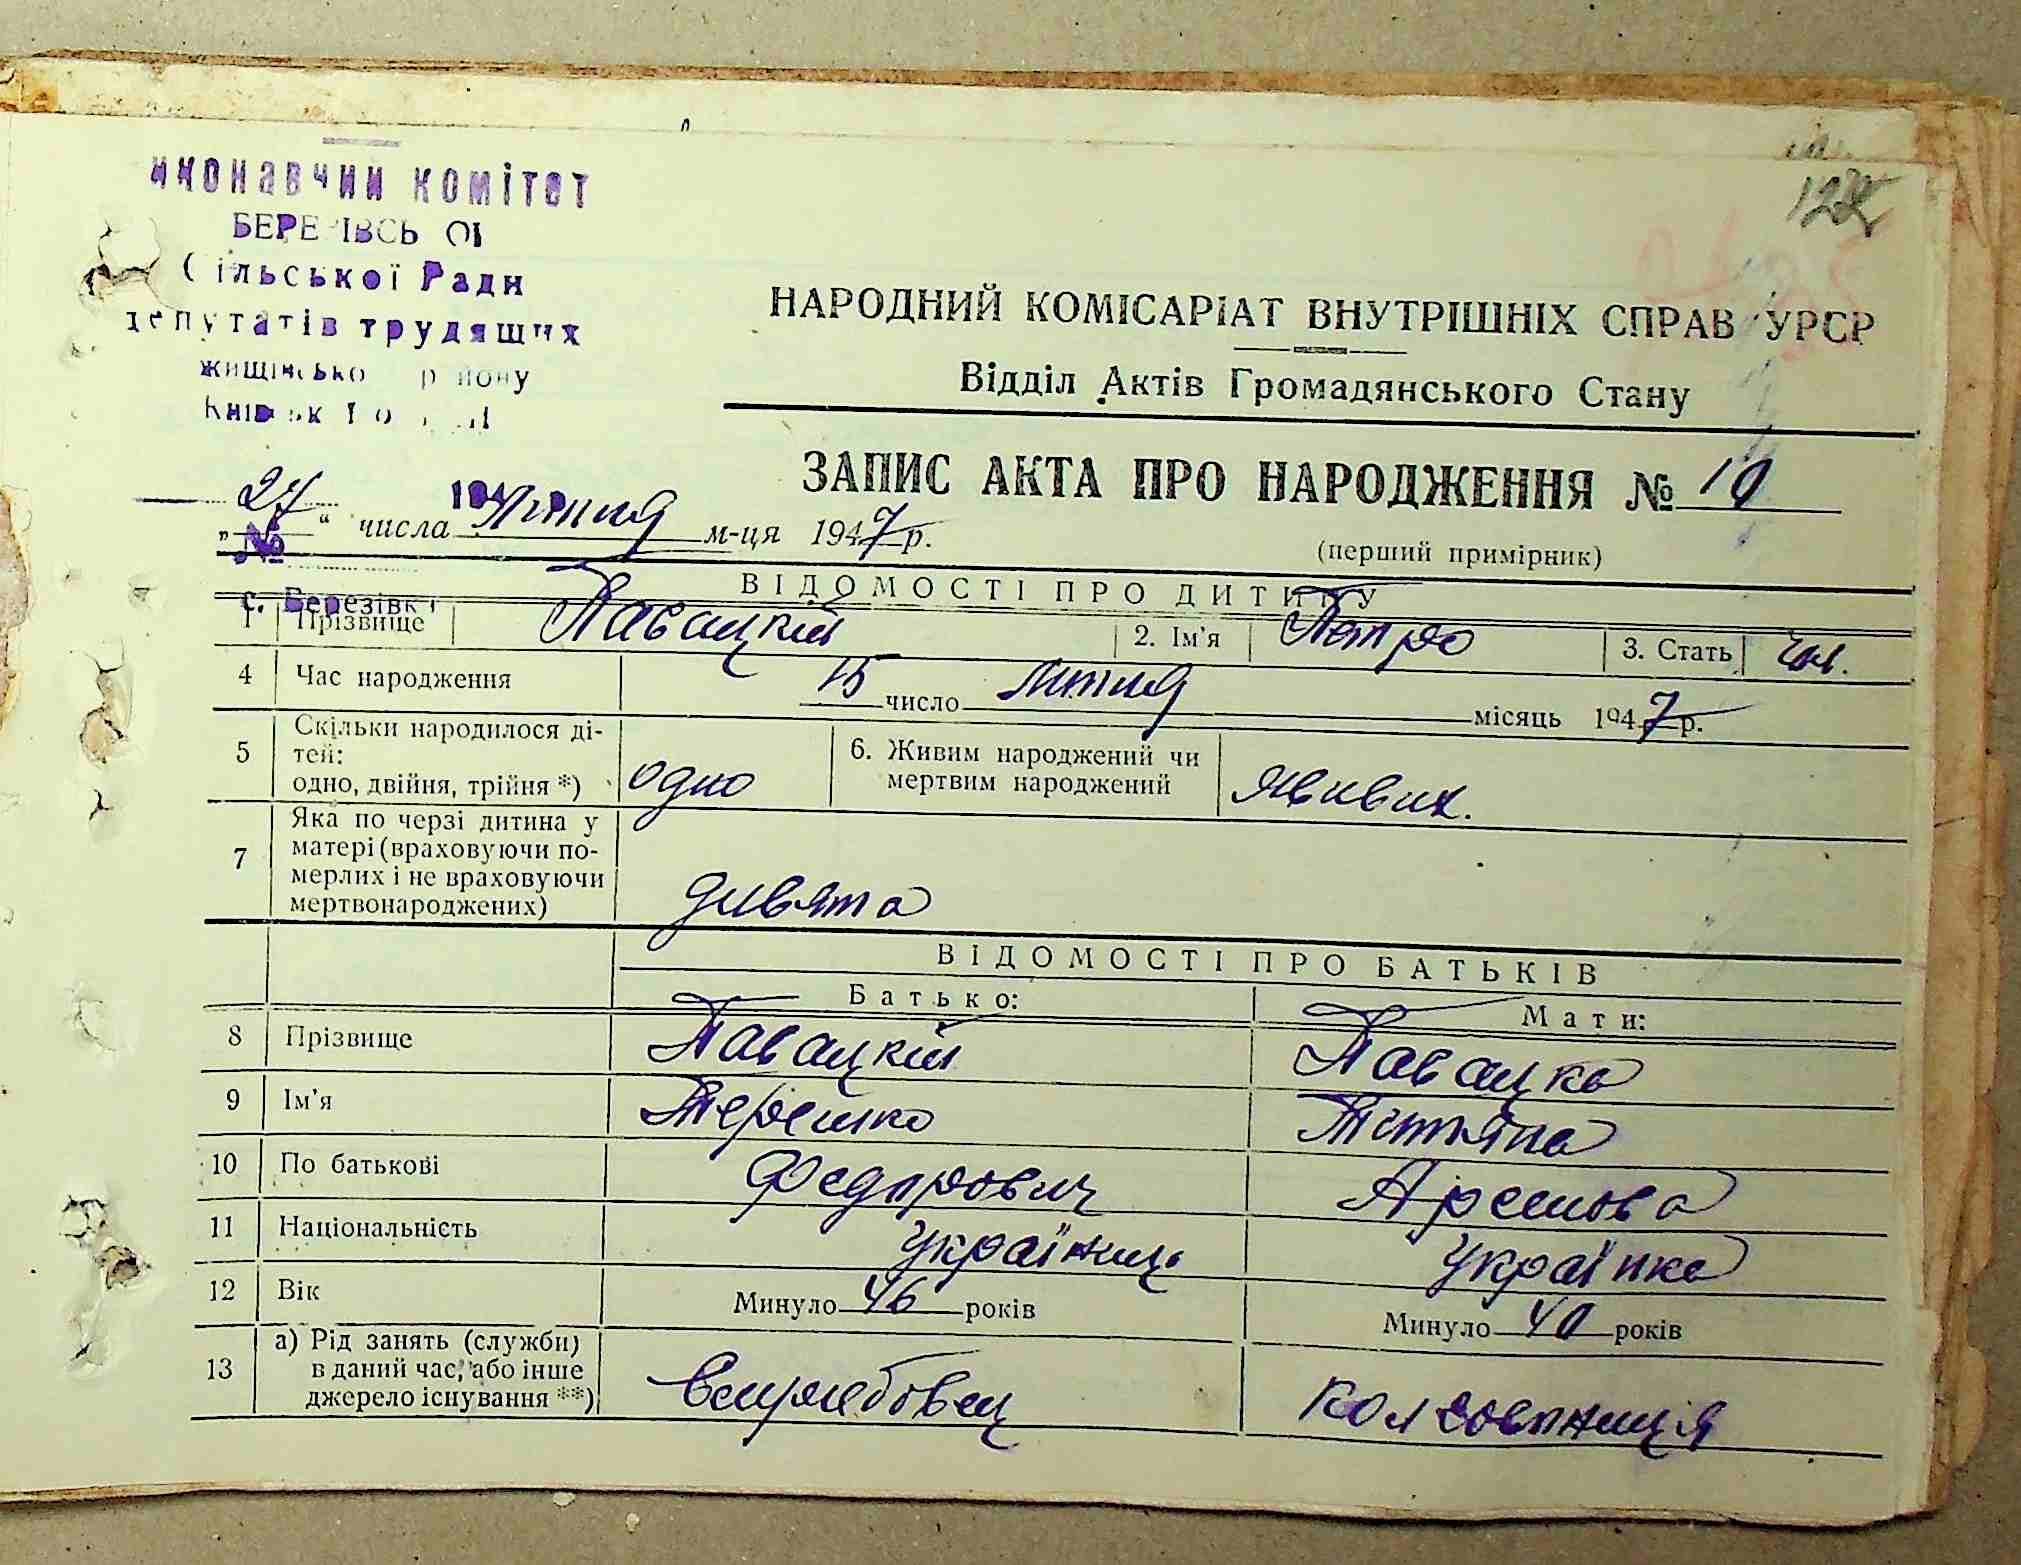 иконавчий комітет
БЕРЕ ІВСЬ ОЇ
Сільської Ради
депутатів трудящих
жищівсько р йону
122
НАРОДНИЙ КОМІСАРІАТ ВНУТРІШНІХ СПРАВ УРСР
Відділ Актів Громадянського Стану
ЗАПИС АКТА ПРО НАРОДЖЕННЯ № 10
„27“ числа Лютня м-ця 1947 р.
(перший примірник)
№
ВІДОМОСТІ ПРО ДИТИНУ
с. Березівк
1 Прізвище Павацкій 2. Ім'я Петро 3. Стать чол.
4 Час народження 15 число Лютня місяць 1947 р.
5 Скільки народилося ді-
тей:
одно, двійня, трійня *) одно
6. Живим народжений чи
мертвим народжений живих.
7 Яка по черзі дитина у
матері (враховуючи по-
мерлих і не враховуючи
мертвонароджених) дивята
ВІДОМОСТІ ПРО БАТЬКІВ
Батько: Мати:
8 Прізвище Павацкій Павацка
9 Ім'я Терешко Титяна
10 По батькові Федорович Аремова
11 Національність українець українка
12 Вік Минуло 46 років Минуло 40 років
13 а) Рід занять (служби)
в даний час, або інше
джерело існування **) вслужбовец колгоспниця